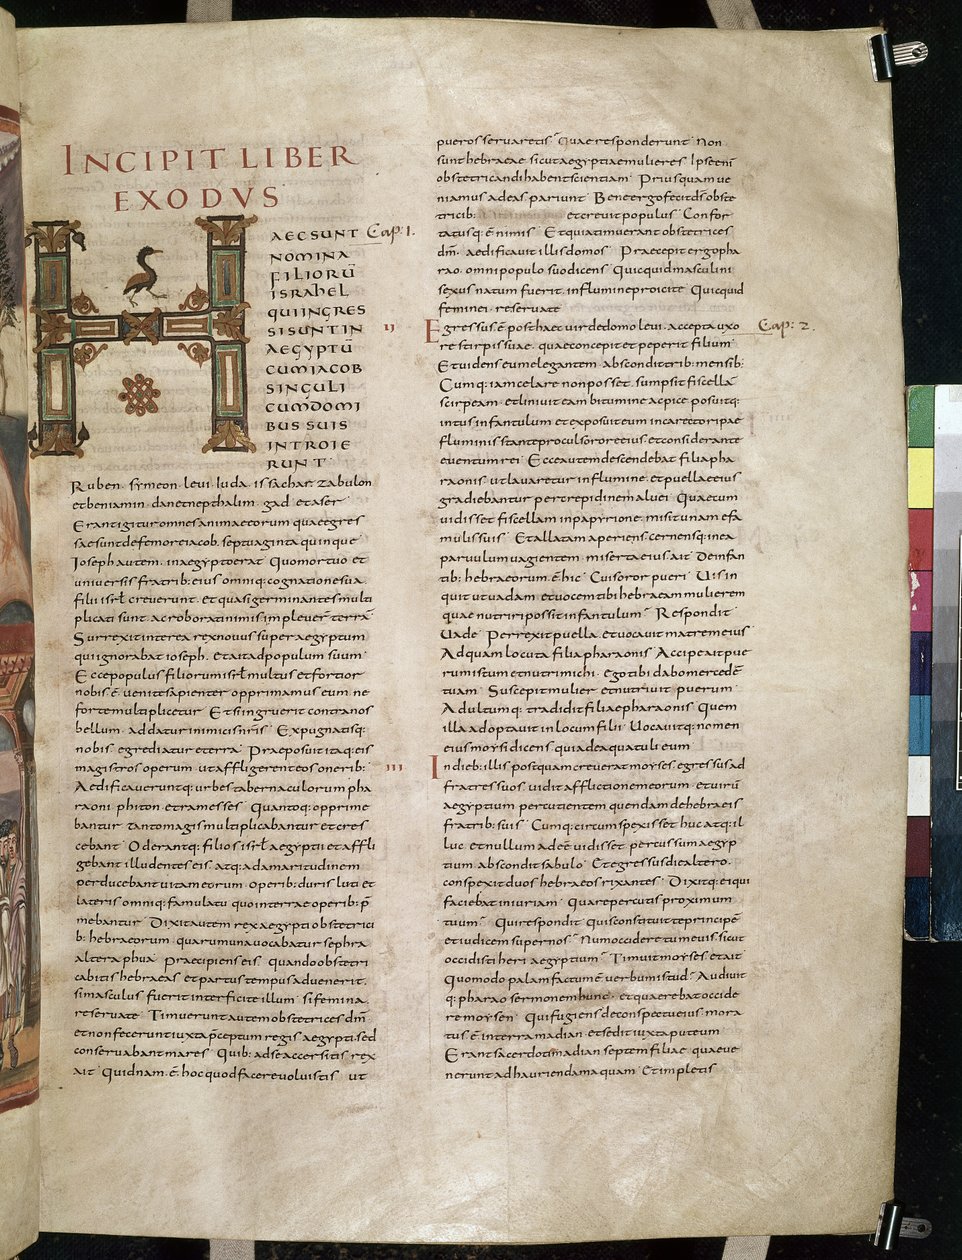 INCIPIT LIBER
EXODVS
HAEC SUNT Cap. 1.
NOMINA
FILIORŪ
ISRAHEL
QUI INGRES
SISUNT IN
AEGYPTŪ
CUM IACOB
SINGULI
CUM DOMI
BUS SUIS
INTROIE
RUNT·
Ruben· symeon· levi· iuda· issachar· zabulon
et beniamin· dan et nepthalim· gad· et aser
Erant igitur omnes animae eorum quae egres
sae sunt de femore iacob· septuaginta quinque
Ioseph autem· in aegypto erat· Quo mortuo et
universis fratrib; eius omniq; cognatione sua·
filii isrł creverunt· et quasi germinantes multi
plicati sunt· ac roborati nimis implevert̄ terrā
Surrexit interea rex novus super aegyptum
qui ignorabat ioseph· et ait ad populum suum
Ecce populus filiorum isrł multus et fortior
nobis ē· venite sapienter opprimamus eum ne
forte multiplicetur· Et si ingruerit contra nos
bellum· addatur inimicis nr̄is· Expugnatisq;
nobis egrediatur e terra· Praeposuit itaq; eis
magistros operum· ut affligerent eos onerib;
Aedificaveruntq; urbes tabernaculorum pha
raoni· phiton· et ramesses· Quantoq; opprime
bantur· tanto magis multiplicabantur et cres
cebant· Oderantq; filios isrł aegyptii et affli
gebant illudentes eis· atq; ad amaritudinem
perducebant vitam eorum· operib; duris luti et
lateris omniq; famulatu quo in terrae operib; p̄
mebantur· Dixit autem rex aegypti obstetrici
b; hebraeorum· quarum una vocabatur sephra
altera phua· praecipiens eis· quando obstetri
cabitis hebraeas et partus tempus advenerit·
si masculus fuerit interficite illum· si femina·
reservate· Timuerunt autem obstetrices dm̄·
et non fecerunt iuxta p̄ceptum regis aegypti· sed
conservabant mares· Quib; ad se accersitis rex
ait· Quidnam ē· hoc quod facere voluistis· ut
pueros servaretis· Quae responderunt· Non
sunt hebraeae sicut aegyptiae mulieres· Ipse enī
obstetricandi habent scientiam· Priusquam ve
niamus ad eas pariunt· Bene ergo fecit ds̄ obste
tricib; et crevit populus· Confor
tatusq; ē nimis· Et quia timuerant obstetrices
dm̄· aedificavit illis domos· Praecepit ergo pha
rao· omni populo suo dicens· Quicquid masculini
sexus natum fuerit· in flumine proicite· Quicquid
feminei· reservate
II Egressus ē· post haec vir de domo levi· accepta uxo Cap: 2.
re stirpis suae· quae concepit et peperit filium
Et videns eum elegantem· abscondit trib; mensib;
Cumq; iam celare non posset· sumpsit fiscellā
scirpeam· et linivit eam bitumine ac pice· posuitq;
intus infantulum· et exposuit eum in carecto ripae
fluminis· stante procul sorore eius· et considerante
eventum rei· Ecce autem descendebat filia pha
raonis· ut lavaretur in flumine· et puellae eius
gradiebantur per crepidinem alvei· Quae cum
vidisset fiscellam in papyrione· misit unam e fa
mulis suis· Et allatam aperiens· cernensq; in ea
parvulum vagientem· miserta eius ait· De infan
tib; hebraeorum ē hic· Cui soror pueri· Vis in
quit ut vadam et vocem tibi hebraeam mulierem
quae nutriri possit infantulum· Respondit·
Vade· Perrexit puella· et vocavit matrem eius
Ad quam locuta filia pharaonis· Accipe ait pue
rum istum et nutri mihi· ego tibi dabo mercedē
tuam· Suscepit mulier et nutrivit puerum·
Adultumq; tradidit filiae pharaonis· Quem
illa adoptavit in locum filii· Vocavitq; nomen
eius moysi dicens· quia de aqua tuli eum
III In dieb; illis postquam creverat moyses egressus ad
fratres suos· vidit afflictionem eorum· et virū
aegyptium percutientem quendam de hebraeis
fratrib; suis· Cumq; circumspexisset huc atq; il
luc· et nullum adeē· vidisset· percussum aegyp
tium abscondit sabulo· Et egressus die altero·
conspexit duos hebraeos rixantes· Dixitq; ei qui
faciebat iniuriam· Quare percutis proximum
tuum· Qui respondit· Quis constituit te principē
et iudicem super nos· Num occidere tu me vis· sicut
occidisti heri aegyptium· Timuit moyses et ait
Quomodo palam factum ē verbum istud· Audivit
q; pharao sermonem hunc· et quaerebat occide
re moysen· Qui fugiens de conspectu eius mora
tus ē in terra madian· et sedit iuxta puteum
Erant sacerdoti madian septem filiae· quae ve
nerunt ad hauriendam aquam· Et impletis